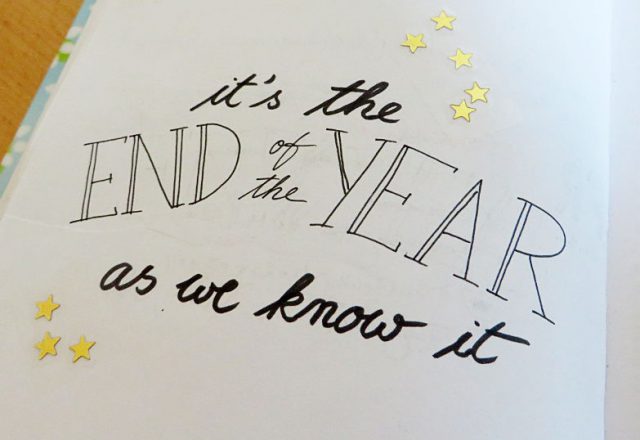 it's the
END of the YEAR
as we know it